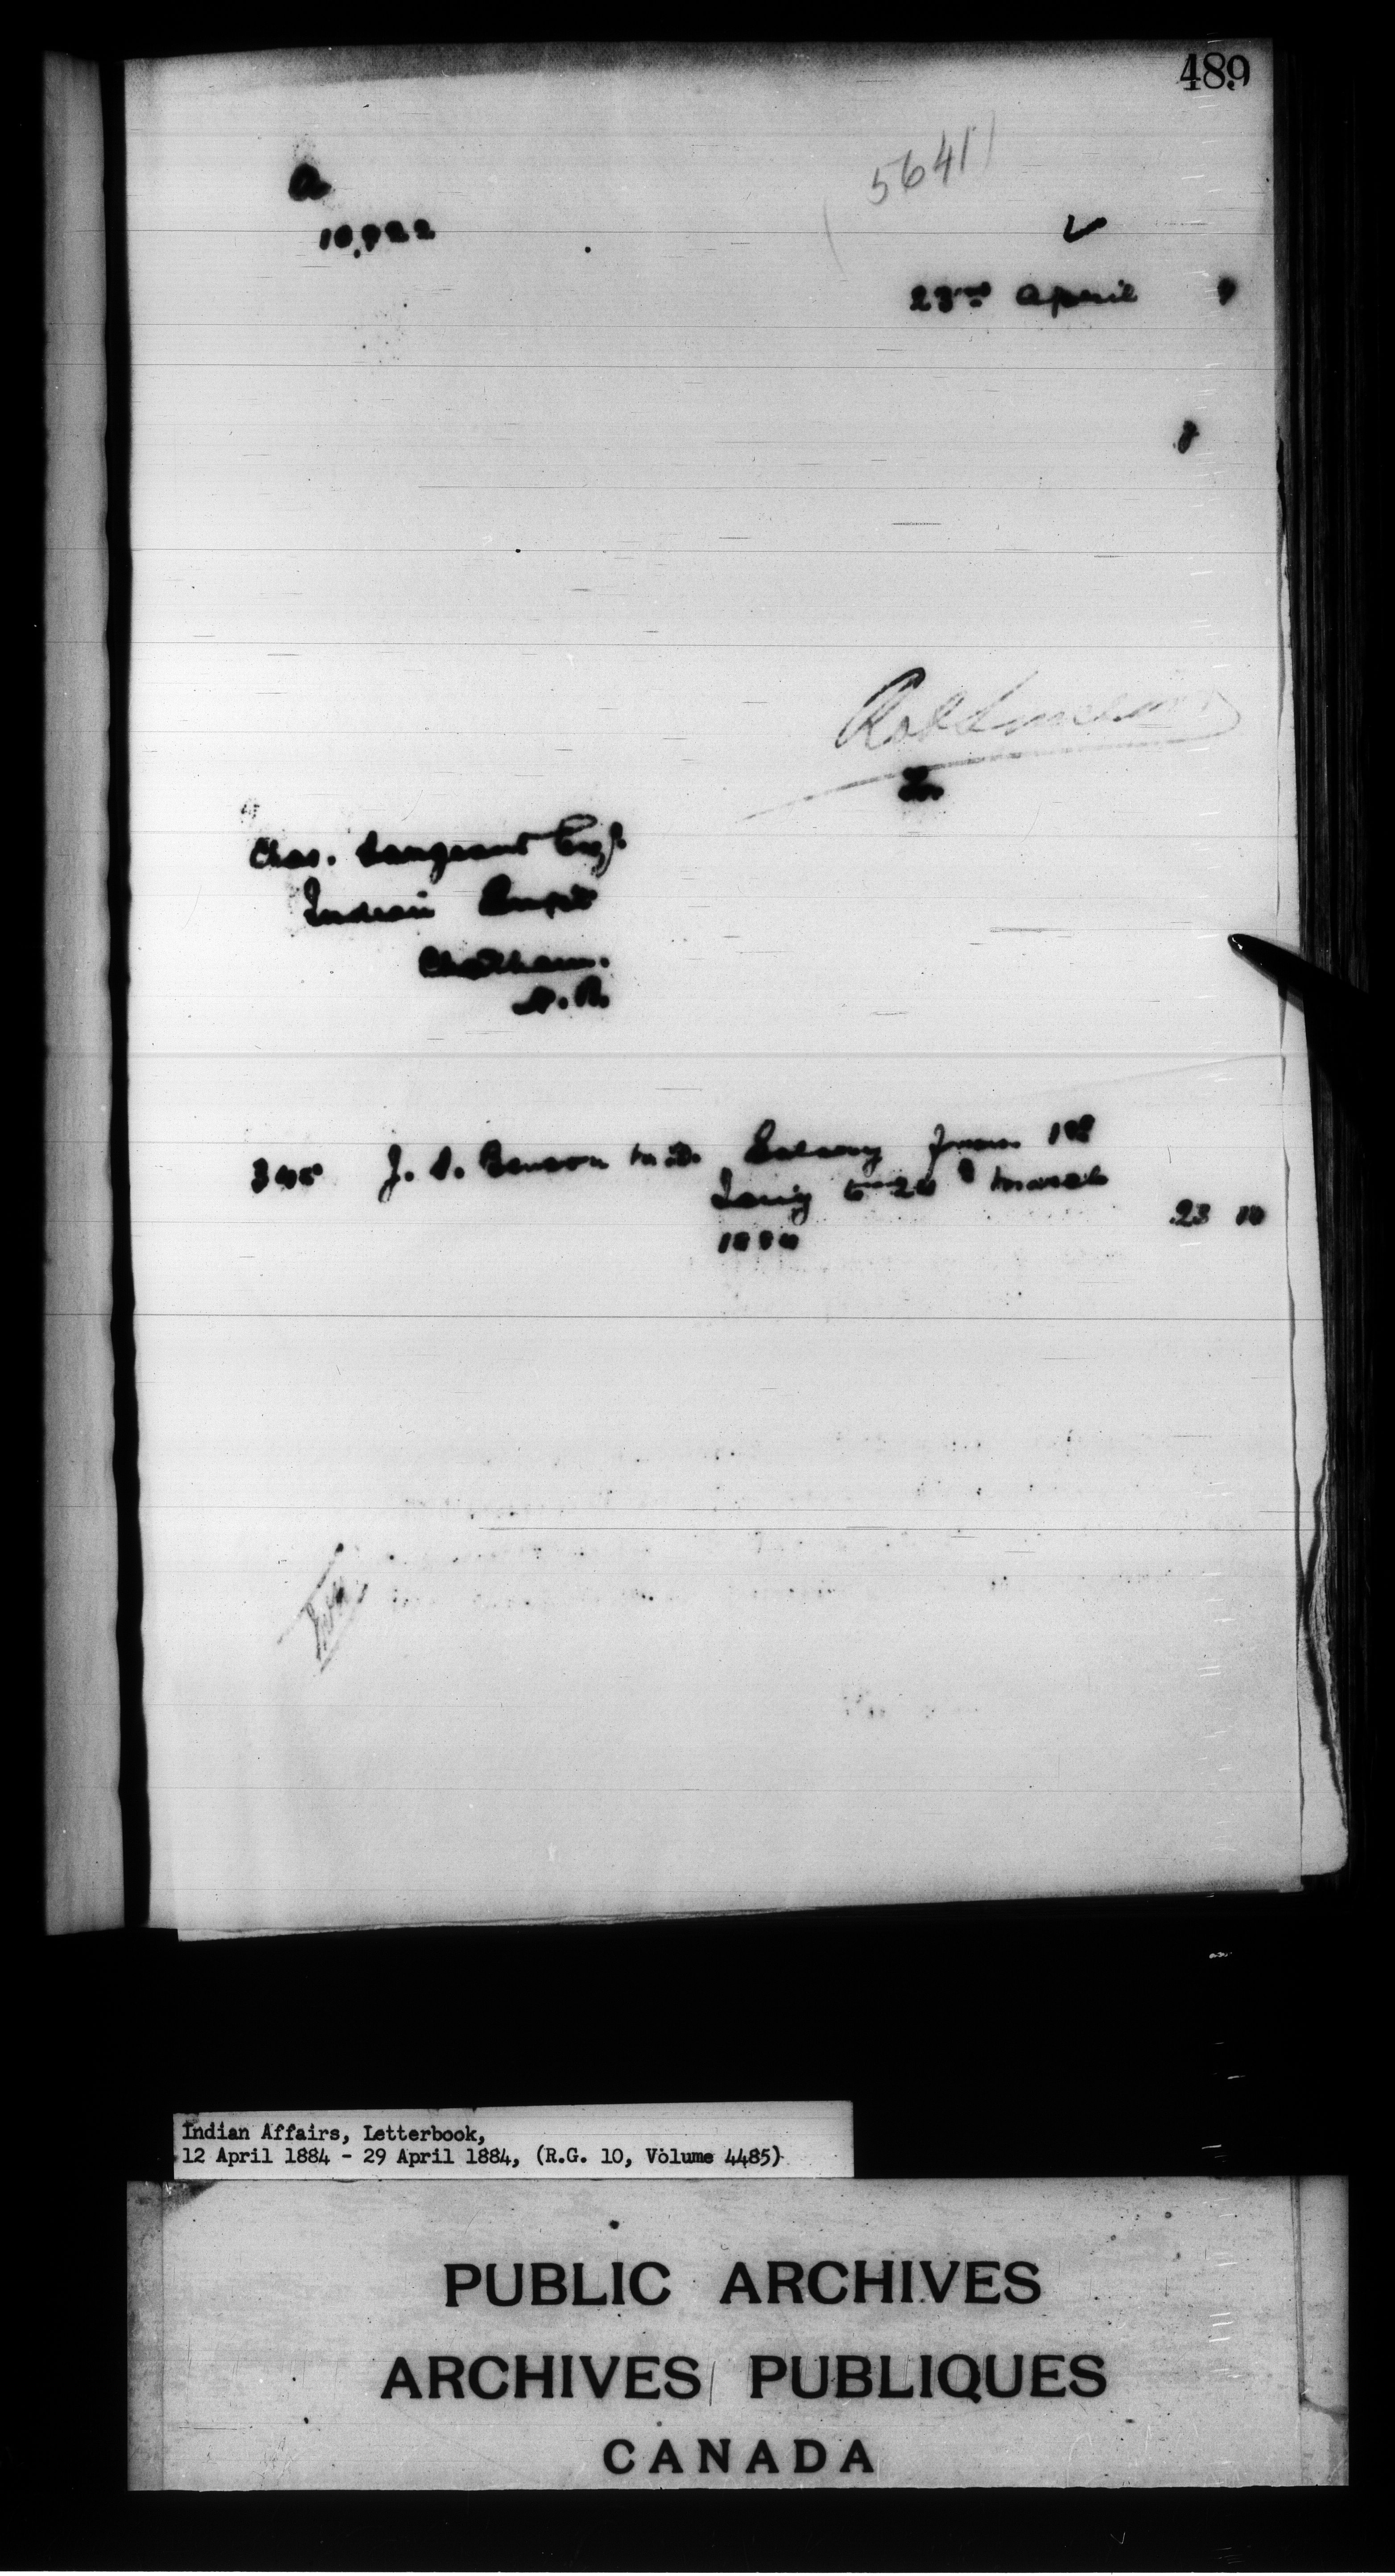 489
5641
a
10,922
23rd April
Chas. Sargeant Esq.
Indian Supt
Chatham.
N.B.
J. S. Benson M.D. Salary from 1st
to March
1884
23 10
Indian Affairs, Letterbook,
12 April 1884 - 29 April 1884, (R.G. 10, Volume 4485)
PUBLIC ARCHIVES
ARCHIVES PUBLIQUES
CANADA